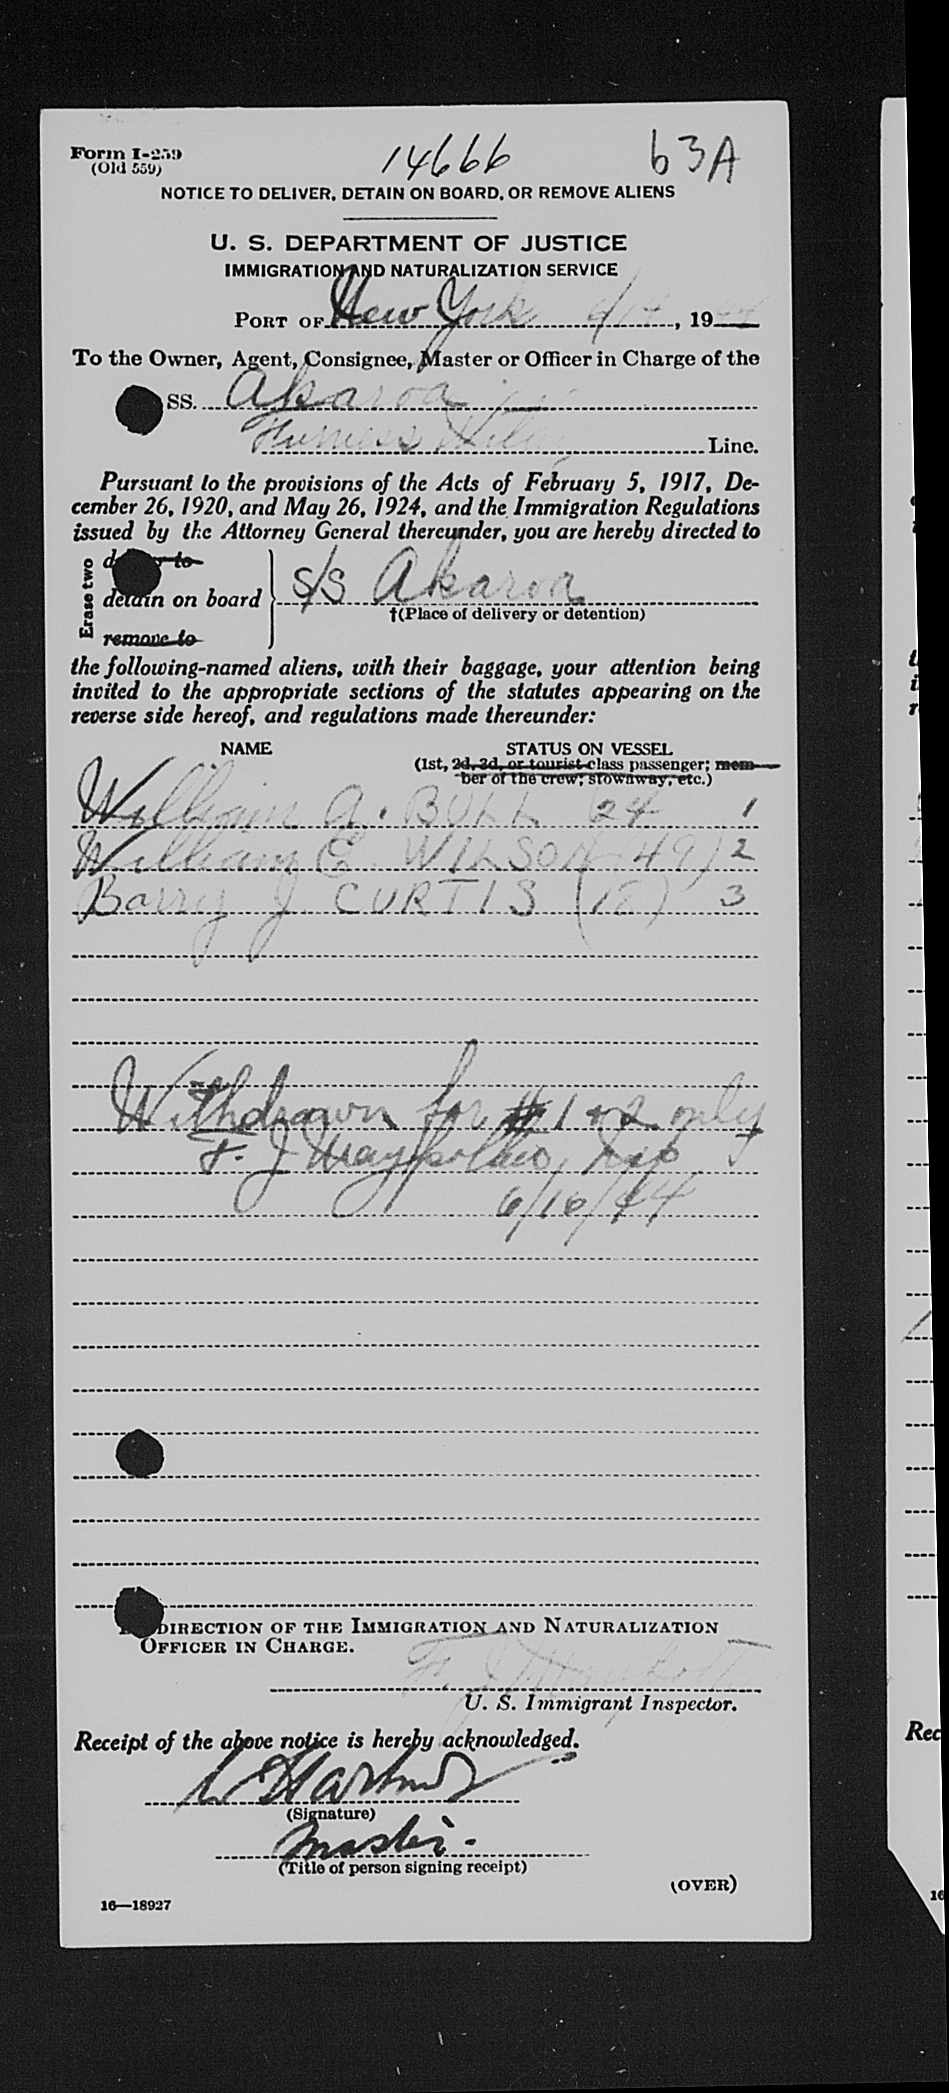 Form I-259
(Old 559)
14666
63A
NOTICE TO DELIVER, DETAIN ON BOARD, OR REMOVE ALIENS
U. S. DEPARTMENT OF JUSTICE
IMMIGRATION AND NATURALIZATION SERVICE
PORT OF New York, 19
To the Owner, Agent, Consignee, Master or Officer in Charge of the
SS. Akaroa
Furness Line.
Pursuant to the provisions of the Acts of February 5, 1917, De-
cember 26, 1920, and May 26, 1924, and the Immigration Regulations
issued by the Attorney General thereunder, you are hereby directed to
Erase two
to
detain on board } S/S Akaroa
†(Place of delivery or detention)
remove to
the following-named aliens, with their baggage, your attention being
invited to the appropriate sections of the statutes appearing on the
reverse side hereof, and regulations made thereunder:
NAME STATUS ON VESSEL
(1st, 2d, 3d, or tourist-class passenger; mem-
ber of the crew; stowaway, etc.)
William A. BULL 24 1
William E. WILSON (49) 2
Barry J. CURTIS 3
Withdrawn for #1 & 2 only
F. J.
6/16/44
DIRECTION OF THE IMMIGRATION AND NATURALIZATION
OFFICER IN CHARGE.
F. J.
U. S. Immigrant Inspector.
Receipt of the above notice is hereby acknowledged.
(Signature)
Master.
(Title of person signing receipt)
(OVER)
16—18927
Rec
16